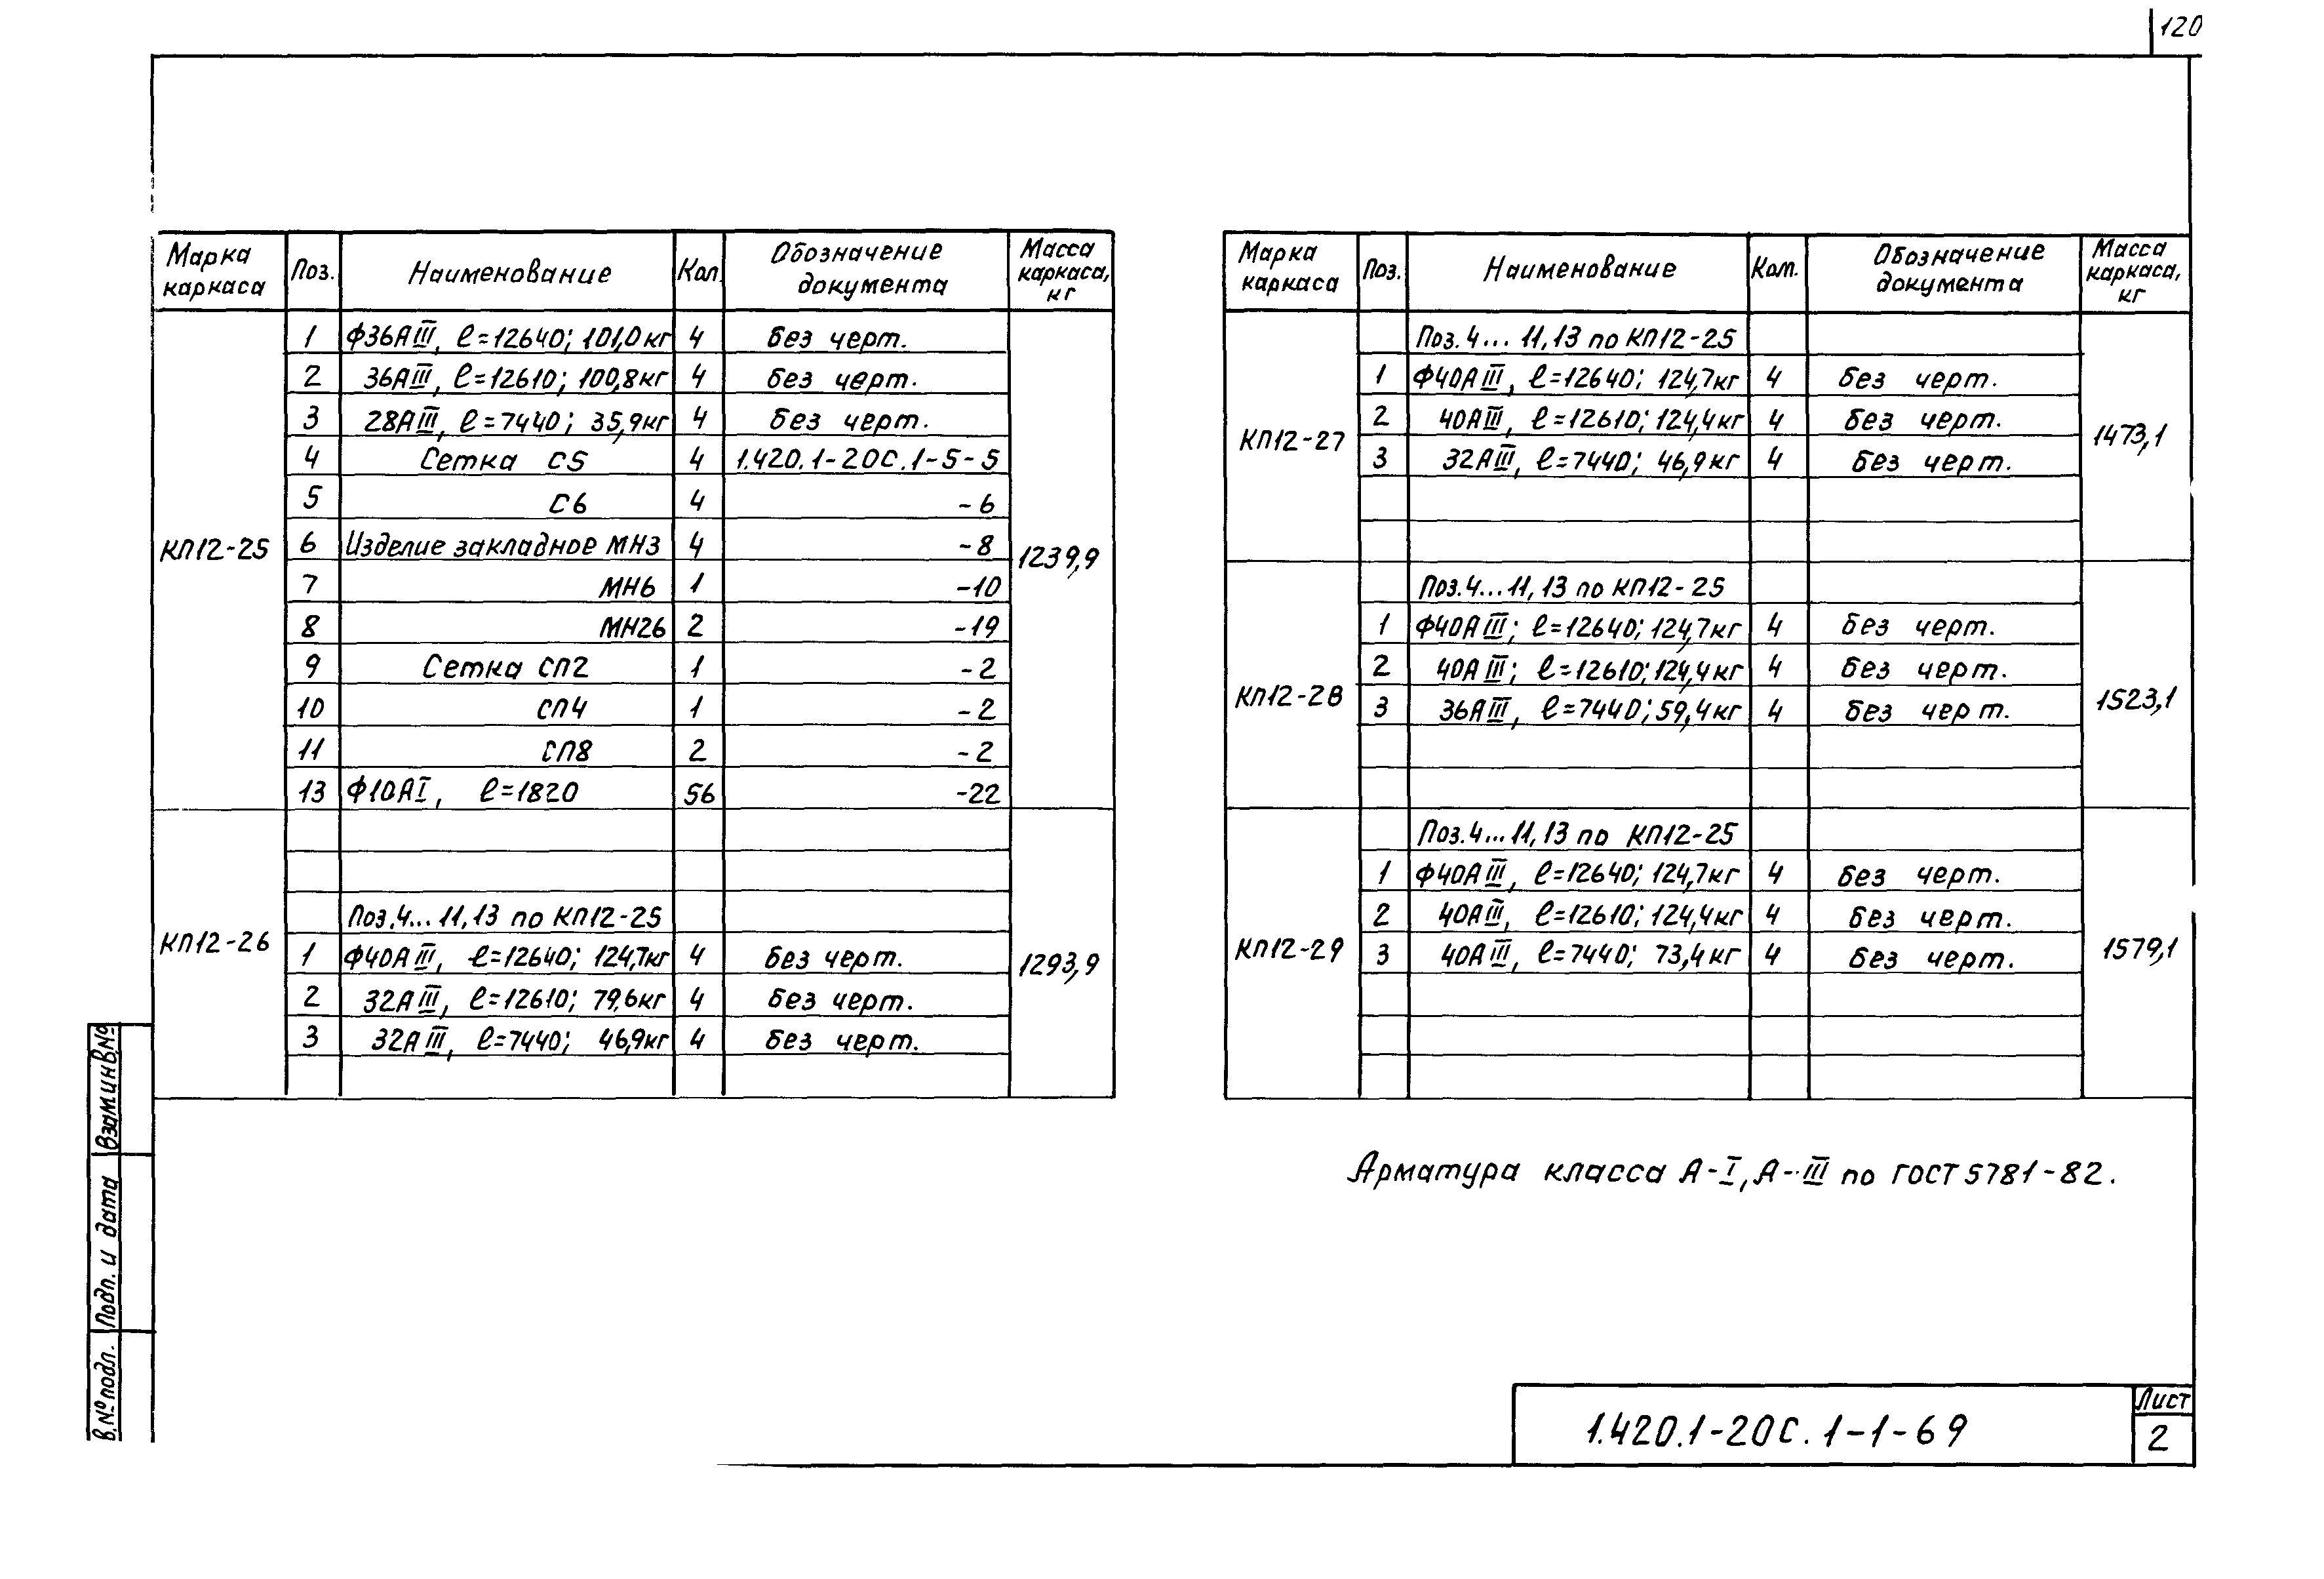 120
Марка каркаса | Поз. | Наименование | Кол. | Обозначение документа | Масса каркаса, кг
КП12-25 | 1 | Ф36АIII, ℓ=12640; 101,0кг | 4 | без черт. | 1239,9
2 | 36АIII, ℓ=12610; 100,8кг | 4 | без черт.
3 | 28АIII, ℓ=7440; 35,9кг | 4 | без черт.
4 | Сетка С5 | 4 | 1.420.1-20С.1-5-5
5 | С6 | 4 | -6
6 | Изделие закладное МН3 | 4 | -8
7 | МН6 | 1 | -10
8 | МН26 | 2 | -19
9 | Сетка СП2 | 1 | -2
10 | СП4 | 1 | -2
11 | СП8 | 2 | -2
13 | Ф10АI, ℓ=1820 | 56 | -22
КП12-26 | Поз.4...11,13 по КП12-25 | 1293,9
1 | Ф40АIII, ℓ=12640; 124,7кг | 4 | без черт.
2 | 32АIII, ℓ=12610; 79,6кг | 4 | без черт.
3 | 32АIII, ℓ=7440; 46,9кг | 4 | без черт.
Марка каркаса | Поз. | Наименование | Кол. | Обозначение документа | Масса каркаса, кг
КП12-27 | Поз.4...11,13 по КП12-25 | 1473,1
1 | Ф40АIII, ℓ=12640; 124,7кг | 4 | без черт.
2 | 40АIII, ℓ=12610; 124,4кг | 4 | без черт.
3 | 32АIII, ℓ=7440; 46,9кг | 4 | без черт.
КП12-28 | Поз.4...11,13 по КП12-25 | 1523,1
1 | Ф40АIII; ℓ=12640; 124,7кг | 4 | без черт.
2 | 40АIII; ℓ=12610; 124,4кг | 4 | без черт.
3 | 36АIII, ℓ=7440; 59,4кг | 4 | без черт.
КП12-29 | Поз.4...11,13 по КП12-25 | 1579,1
1 | Ф40АIII, ℓ=12640; 124,7кг | 4 | без черт.
2 | 40АIII, ℓ=12610; 124,4кг | 4 | без черт.
3 | 40АIII, ℓ=7440; 73,4кг | 4 | без черт.
Арматура класса А-I, А-III по ГОСТ 5781-82.
Взам.инв№
Подп. и дата
в.№подл.
1.420.1-20С.1-1-69
Лист
2